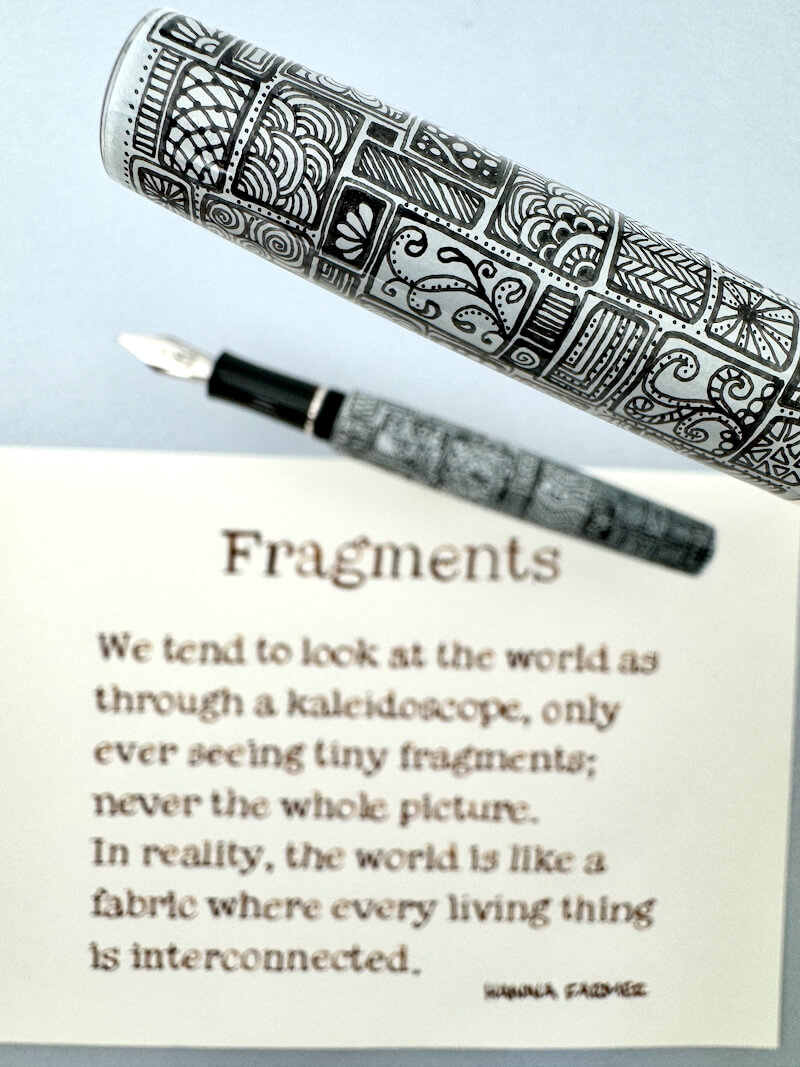 Fragments
We tend to look at the world as
through a kaleidoscope, only
ever seeing tiny fragments;
never the whole picture.
In reality, the world is like a
fabric where every living thing
is interconnected.
HANNA FARMER